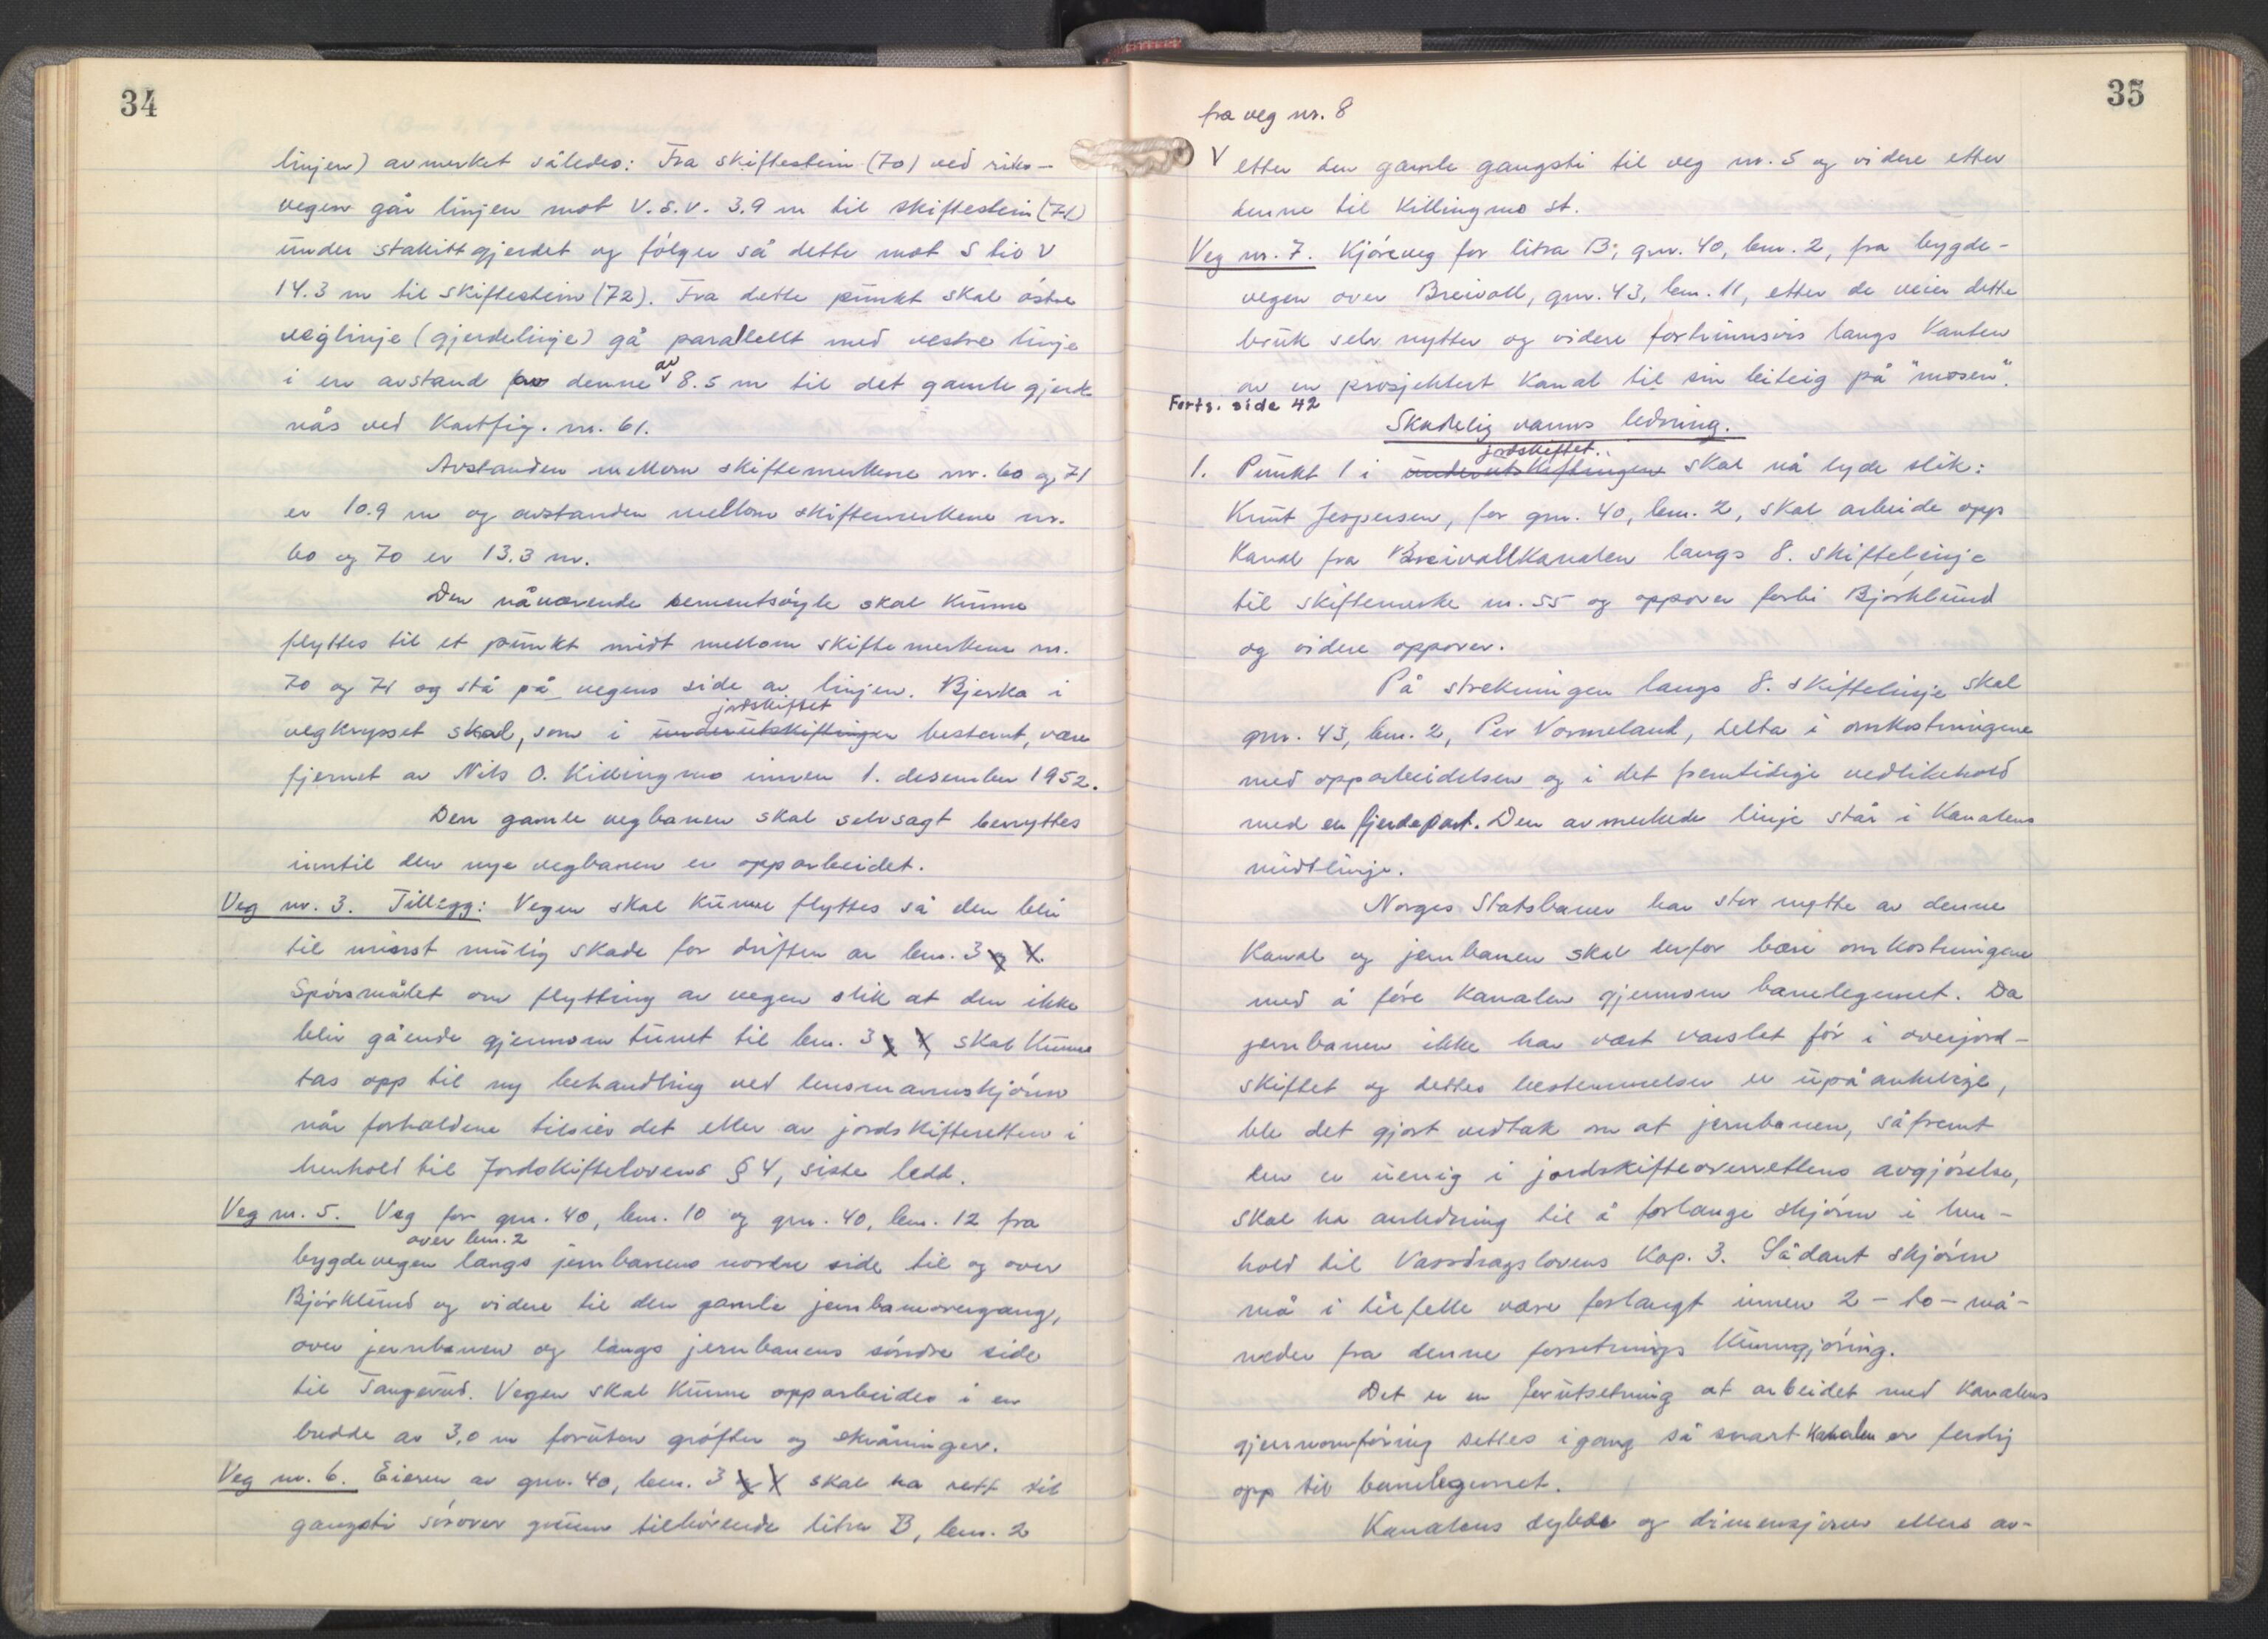 34
linjen) avmerket således: Fra skiftestein (70) ved riks-
vegen går linjen mot V.S.V. 3.9 m til skiftestein (71)
under stakittgjerdet og følger så dette mot S til V
14.3 m til skiftestein (72). Fra dette punkt skal østre
veglinje (gjerdelinje) gå parallellt med vestre linje
i en avstand fra denne av 8.5 m til det gamle gjerde
nås ved Kartfig. nr. 61.
Avstanden mellom skiftemerkene nr. 60 og 71
er 10.9 m og avstanden mellom skiftemerkene nr.
60 og 70 er 13.3 m.
Den nåværende sementsøyle skal kunne
flyttes til et punkt midt mellom skiftemerkene nr.
70 og 71 og stå på vegens side av linjen. Bjerka i
jordskiftet
vegkrysset skal, som i underutskiftingen bestemt, være
fjernet av Nils O. Killingmo innen 1. desember 1952.
Den gamle vegbanen skal selvsagt benyttes
inntil den nye vegbanen er opparbeidet.
Veg nr. 3. Tillegg: Vegen skal kunne flyttes så den blir
til minst mulig skade for driften av bnr. 3 og 4.
Spørsmålet om flytting av vegen slik at den ikke
blir gående gjennom tunet til bnr. 3 og 4, skal kunne
tas opp til ny behandling ved lensmannsskjønn
når forholdene tilsier det eller av jordskifteretten i
henhold til Jordskiftelovens § 4, siste ledd.
Veg nr. 5. Veg for gnr. 40, bnr. 10 og gnr. 40, bnr. 12 fra
over bnr. 2
bygdevegen langs jernbanens nordre side til og over
Bjørklund og videre til den gamle jernbaneovergang,
over jernbanen og langs jernbanens søndre side
til Tangerud. Vegen skal kunne opparbeides i en
bredde av 3,0 m foruten grøfter og skråninger.
Veg nr. 6. Eieren av gnr. 40, bnr. 3 og 4 skal ha rett til
gangsti sørover grunn tilhørende litra B, bnr. 2
35
fra veg nr. 8
V etter den gamle gangsti til veg nr. 5 og videre etter
denne til Killingmo st.
Veg nr. 7. Kjøreveg for litra B; gnr. 40, bnr. 2, fra bygde-
vegen over Breivoll, gnr. 43, bnr. 11, etter de veier dette
bruk selv nytter og videre fortrinnsvis langs Kanten
av en prosjektert Kanal til sin teig på "mosen".
Forts. side 42
Skadelig vanns ledning.
jordskiftet
1. Punkt 1 i underutskiftingen skal nå lyde slik:
Knut Jespersen, for gnr. 40, bnr. 2, skal arbeide opp
Kanal fra Breivollkanalen langs 8. skiftelinje
til skiftemerke nr. 55 og oppover forbi Bjørklund
og videre oppover.
På strekningen langs 8. skiftelinje skal
gnr. 43, bnr. 2, Per Vormeland, delta i omkostningene
med opparbeidelsen og i det fremtidige vedlikehold
med en fjerdepart. Den avmerkede linje står i Kanalens
midtlinje.
Norges Statsbaner har stor nytte av denne
Kanal og jernbanen skal derfor bære omkostningene
med å føre Kanalen gjennom banelegemet. Da
jernbanen ikke har vært varslet før i overjord-
skiftet og dettes bestemmelser er upåankelige,
ble det gjort vedtak om at jernbanen, såfremt
den er uenig i jordskifteoverrettens avgjørelse,
skal ha anledning til å forlange skjønn i hen-
hold til Vassdragslovens Kap. 3. Sådant skjønn
må i tilfelle være forlangt innen 2 - to - må-
neder fra denne forretnings Kunngjøring.
Det er en forutsetning at arbeidet med Kanalens
gjennomføring settes igang så snart Kanalen er ferdig
opp til banelegemet.
Kanalens dybde og dimensjoner ellers av-